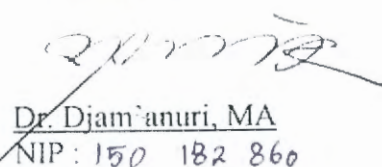 Dr. Djam`anuri, MA
NIP : 150 182 860